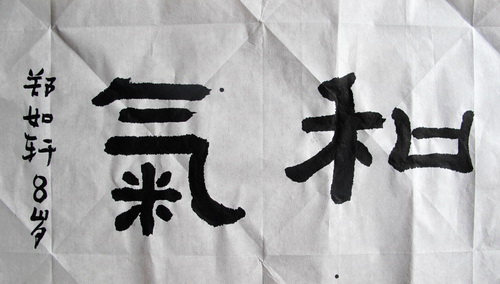 和氣
郑如轩8岁